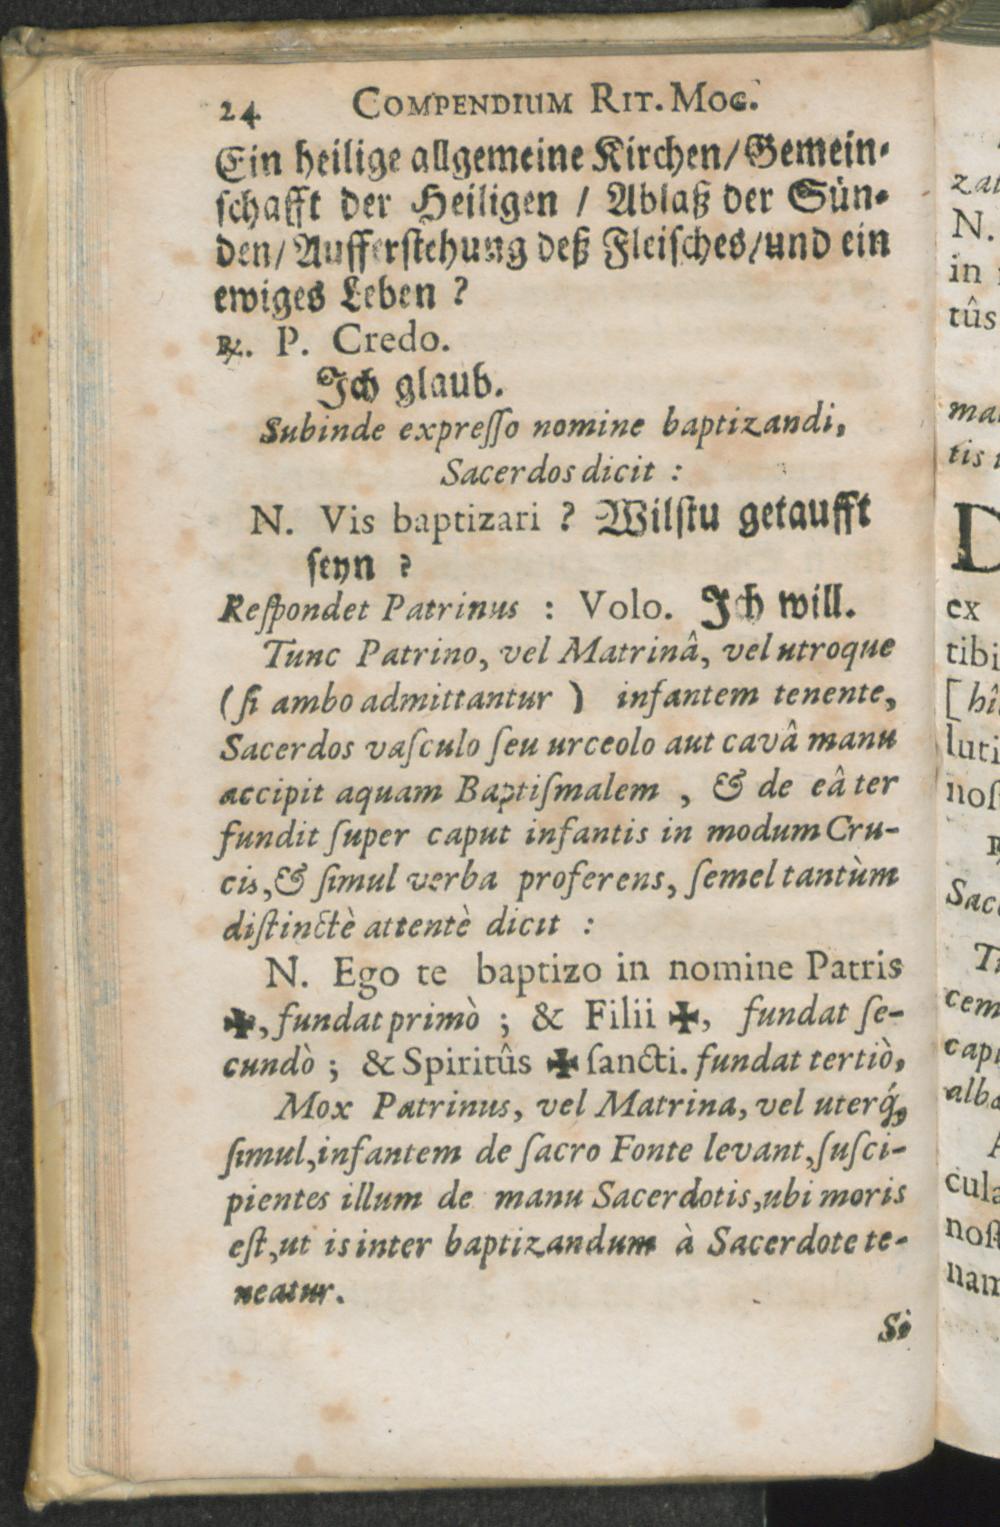 24 COMPENDIUM RIT. MOG.
Ein heilige allgemeine Kirchen/Gemein-
ſchafft der Heiligen / Ablaß der Sün-
den/ Aufferſtehung deß Fleiſches/und ein
ewiges Leben ?
℞. P. Credo.
Ich glaub.
Subinde expreſſo nomine baptizandi,
Sacerdos dicit :
N. Vis baptizari ? Wilſtu getaufft
ſeyn ?
Reſpondet Patrinus : Volo. Ich will.
Tunc Patrino, vel Matrinâ, vel utroque
(ſi ambo admittantur ) infantem tenente,
Sacerdos vaſculo ſeu urceolo aut cavâ manu
accipit aquam Baptiſmalem , & de eâ ter
fundit ſuper caput infantis in modum Cru-
cis, & ſimul verba proferens, ſemel tantùm
diſtinctè attentè dicit :
N. Ego te baptizo in nomine Patris
✠, fundat primò ; & Filii ✠, fundat ſe-
cundò ; & Spiritûs ✠ ſancti. fundat tertiò,
Mox Patrinus, vel Matrina, vel uterq́;
ſimul, infantem de ſacro Fonte levant, ſuſci-
pientes illum de manu Sacerdotis, ubi moris
eſt, ut is inter baptizandum à Sacerdote te-
neatur.
Si
zat
N.
in
tûs
tis
D
ex
tibi
[ hî
luti
noſ
Sac
cem
capi
alba
cula
noſt
nam